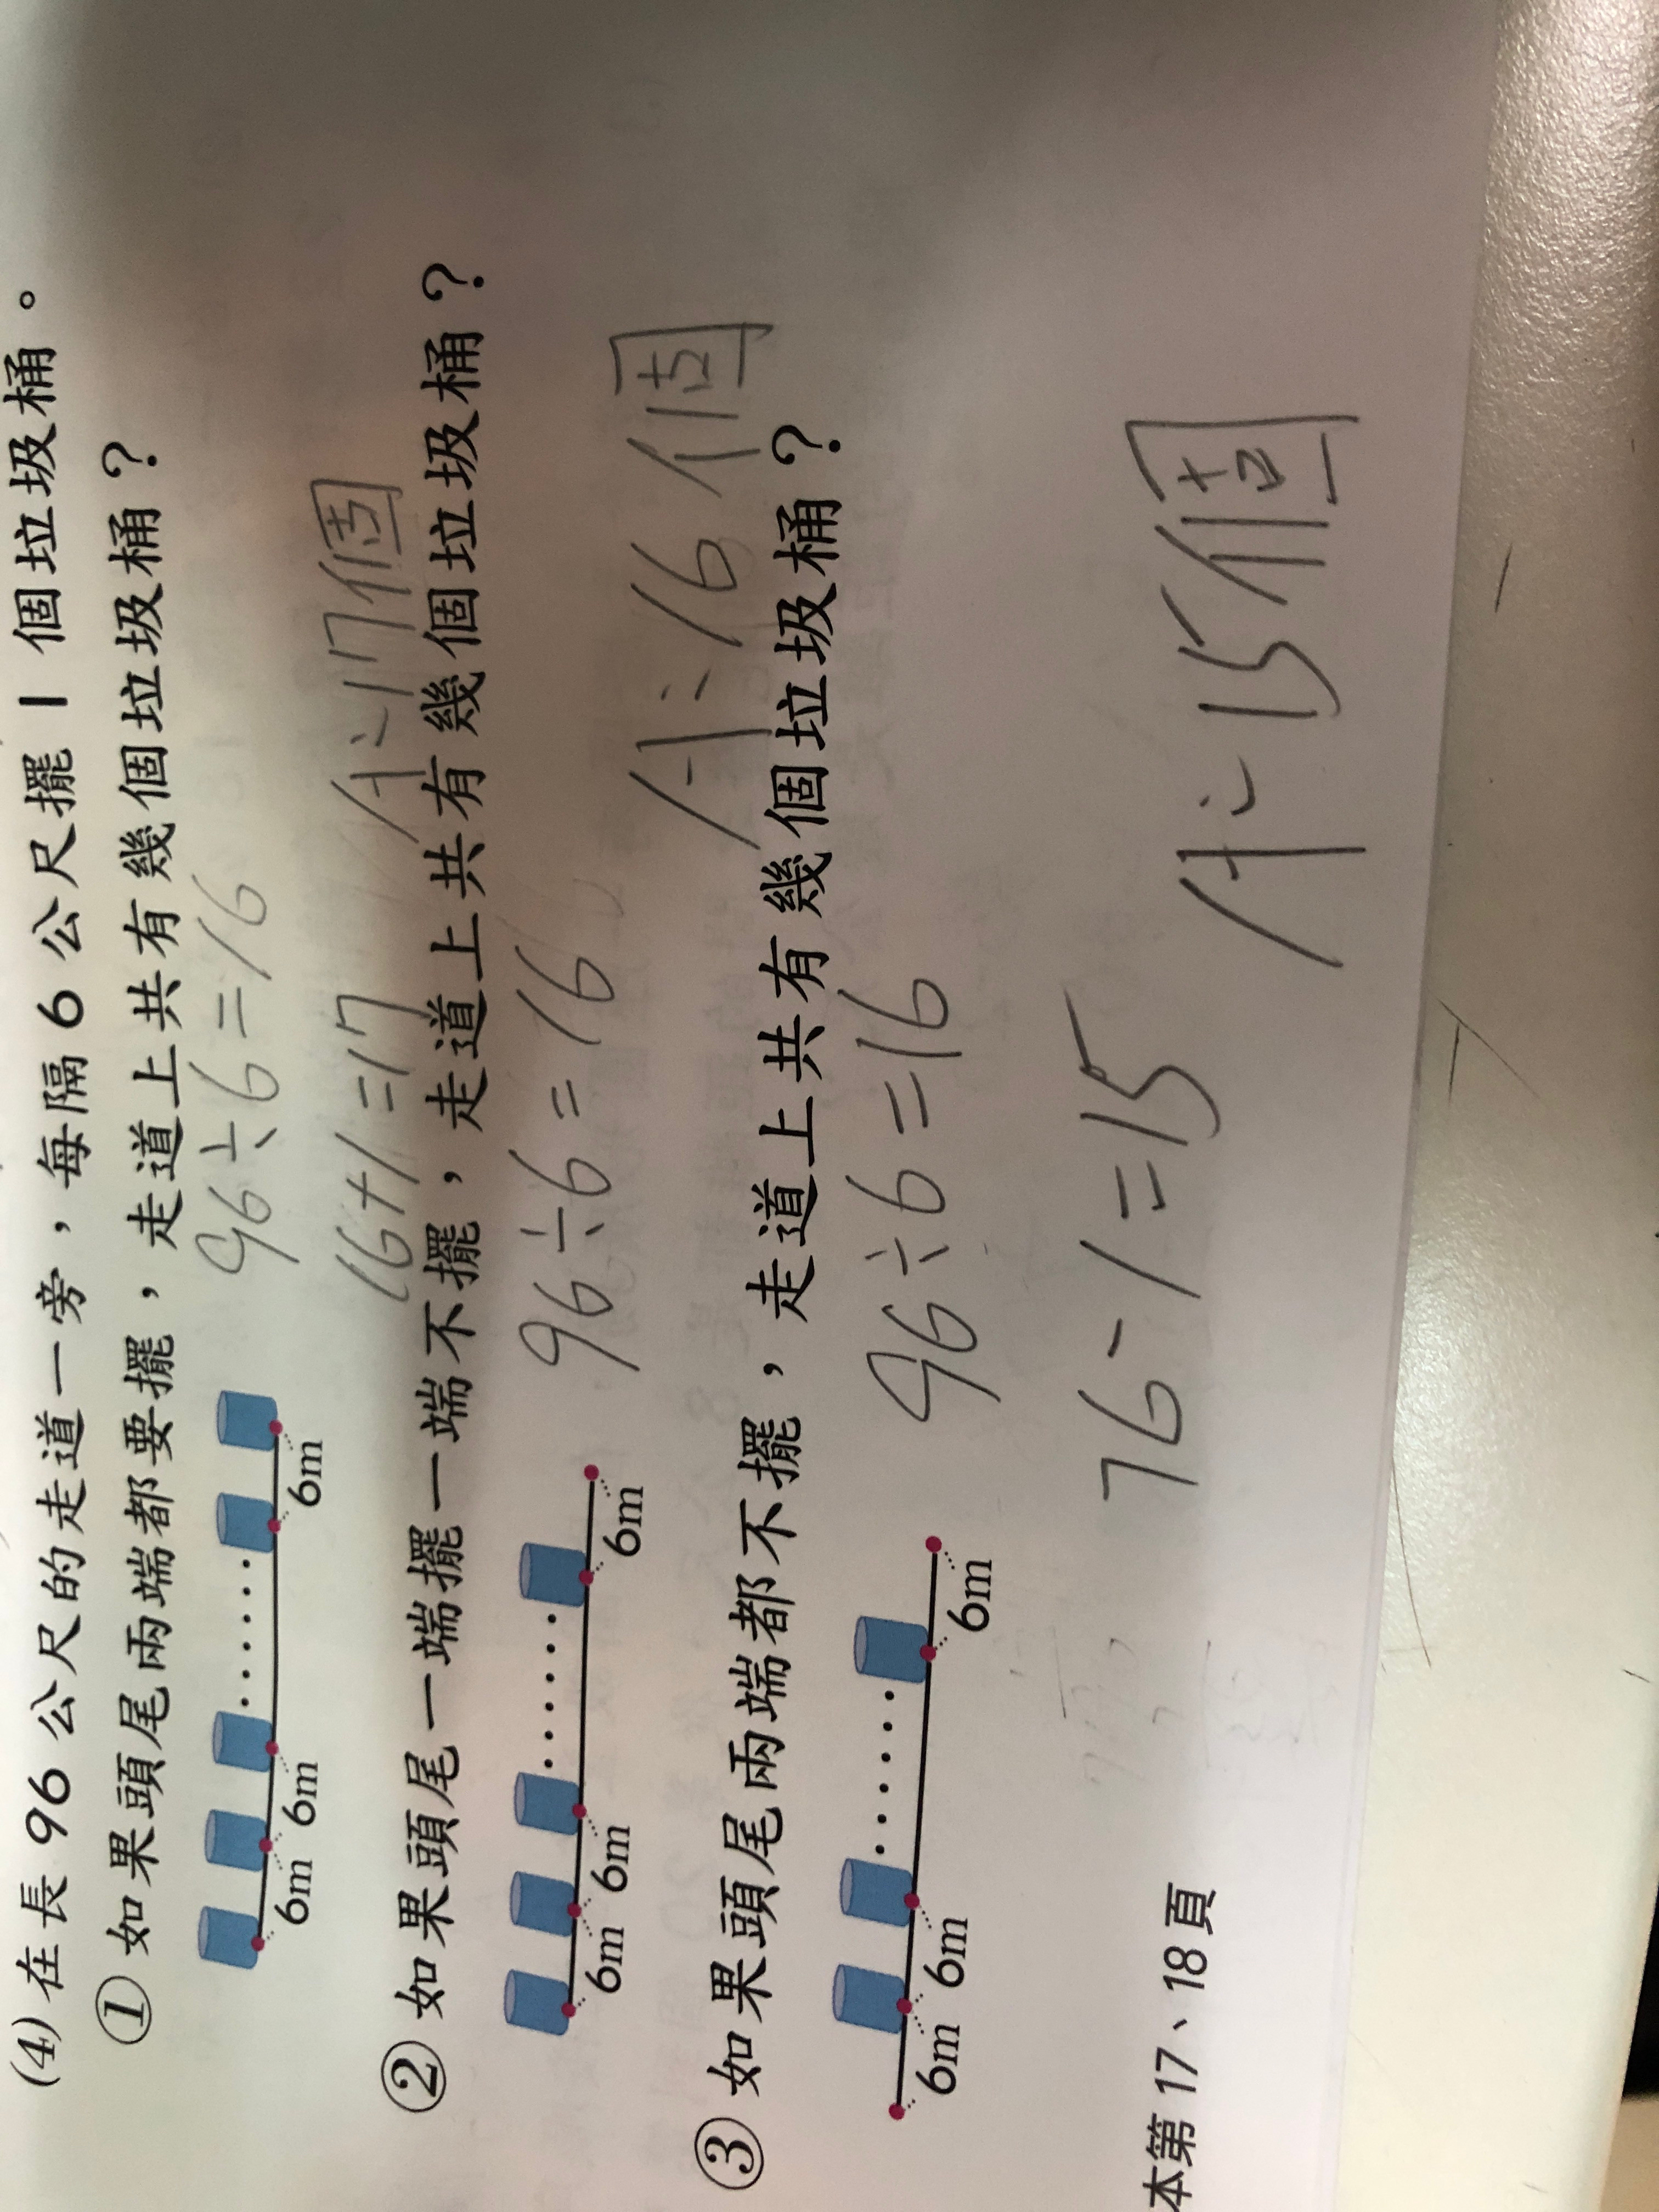 (4) 在長 96 公尺的走道一旁，每隔 6 公尺擺 1 個垃圾桶。
① 如果頭尾兩端都要擺，走道上共有幾個垃圾桶？
96÷6=16
6m 6m 6m
16+1=17 A:17個
② 如果頭尾一端擺一端不擺，走道上共有幾個垃圾桶？
96÷6=16
6m 6m 6m
A:16個
③ 如果頭尾兩端都不擺，走道上共有幾個垃圾桶？
96÷6=16
6m 6m 6m
16-1=15
A:15個
本第 17、18 頁